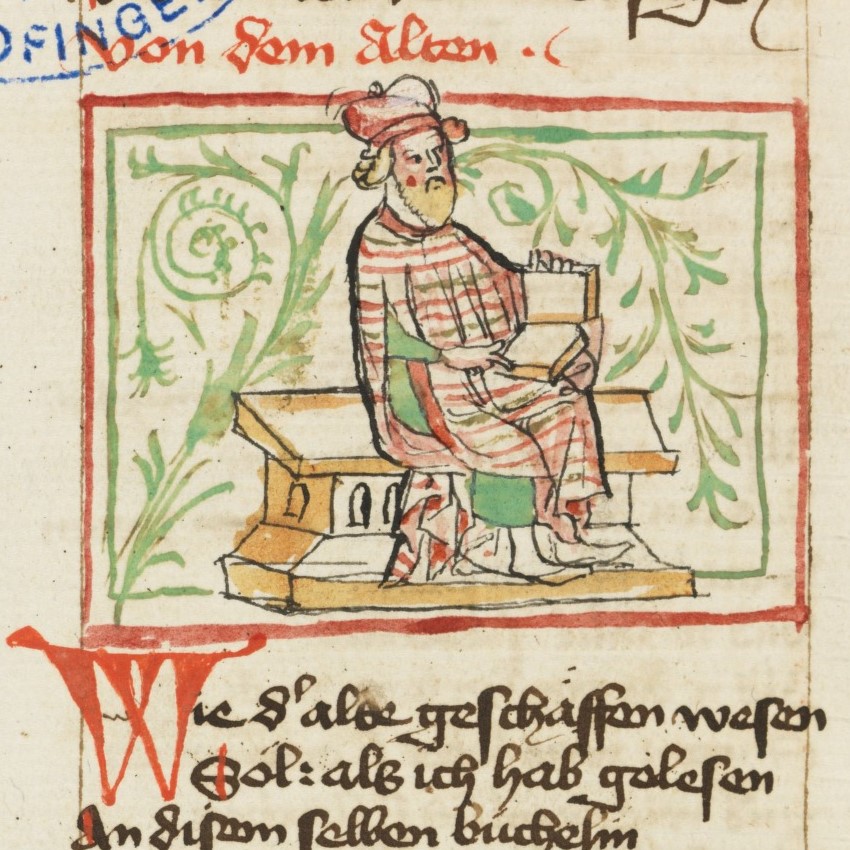 OFINGE
Von dem Alten
Wie d' alte geschaffen wesen
Sol: als ich hab gelesen
An disem selben buchelin